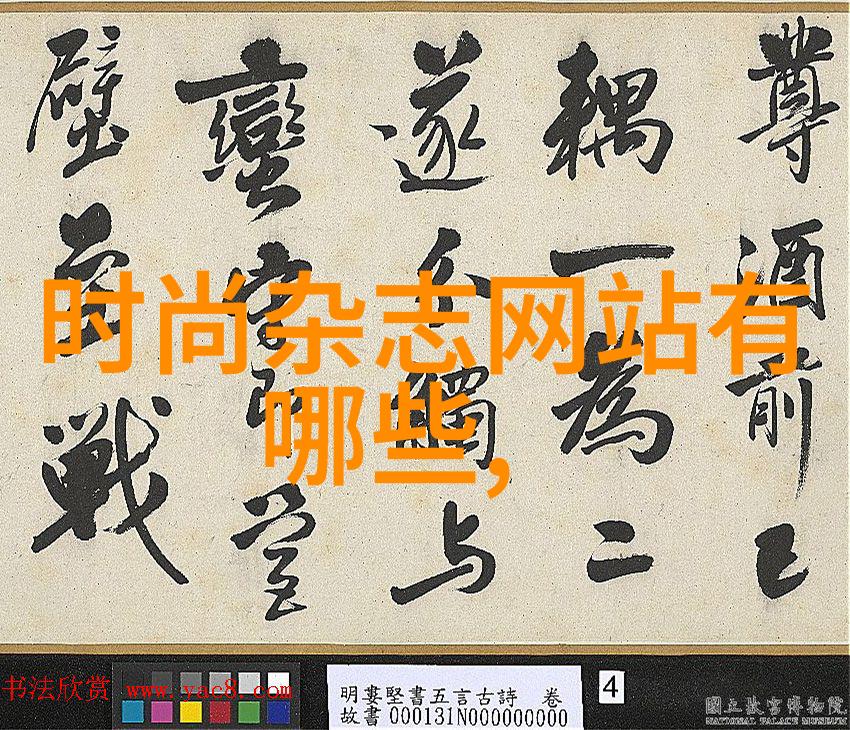 尊酒前已
耦一為二
遂令觸与
蠻
壁
戰
时尚杂志网站有
哪些,
书法欣赏 www.yac8.com
明婁堅書五言古詩 卷
故書 000131N000000000
4
國立故宮博物院
NATIONAL PALACE MUSEUM